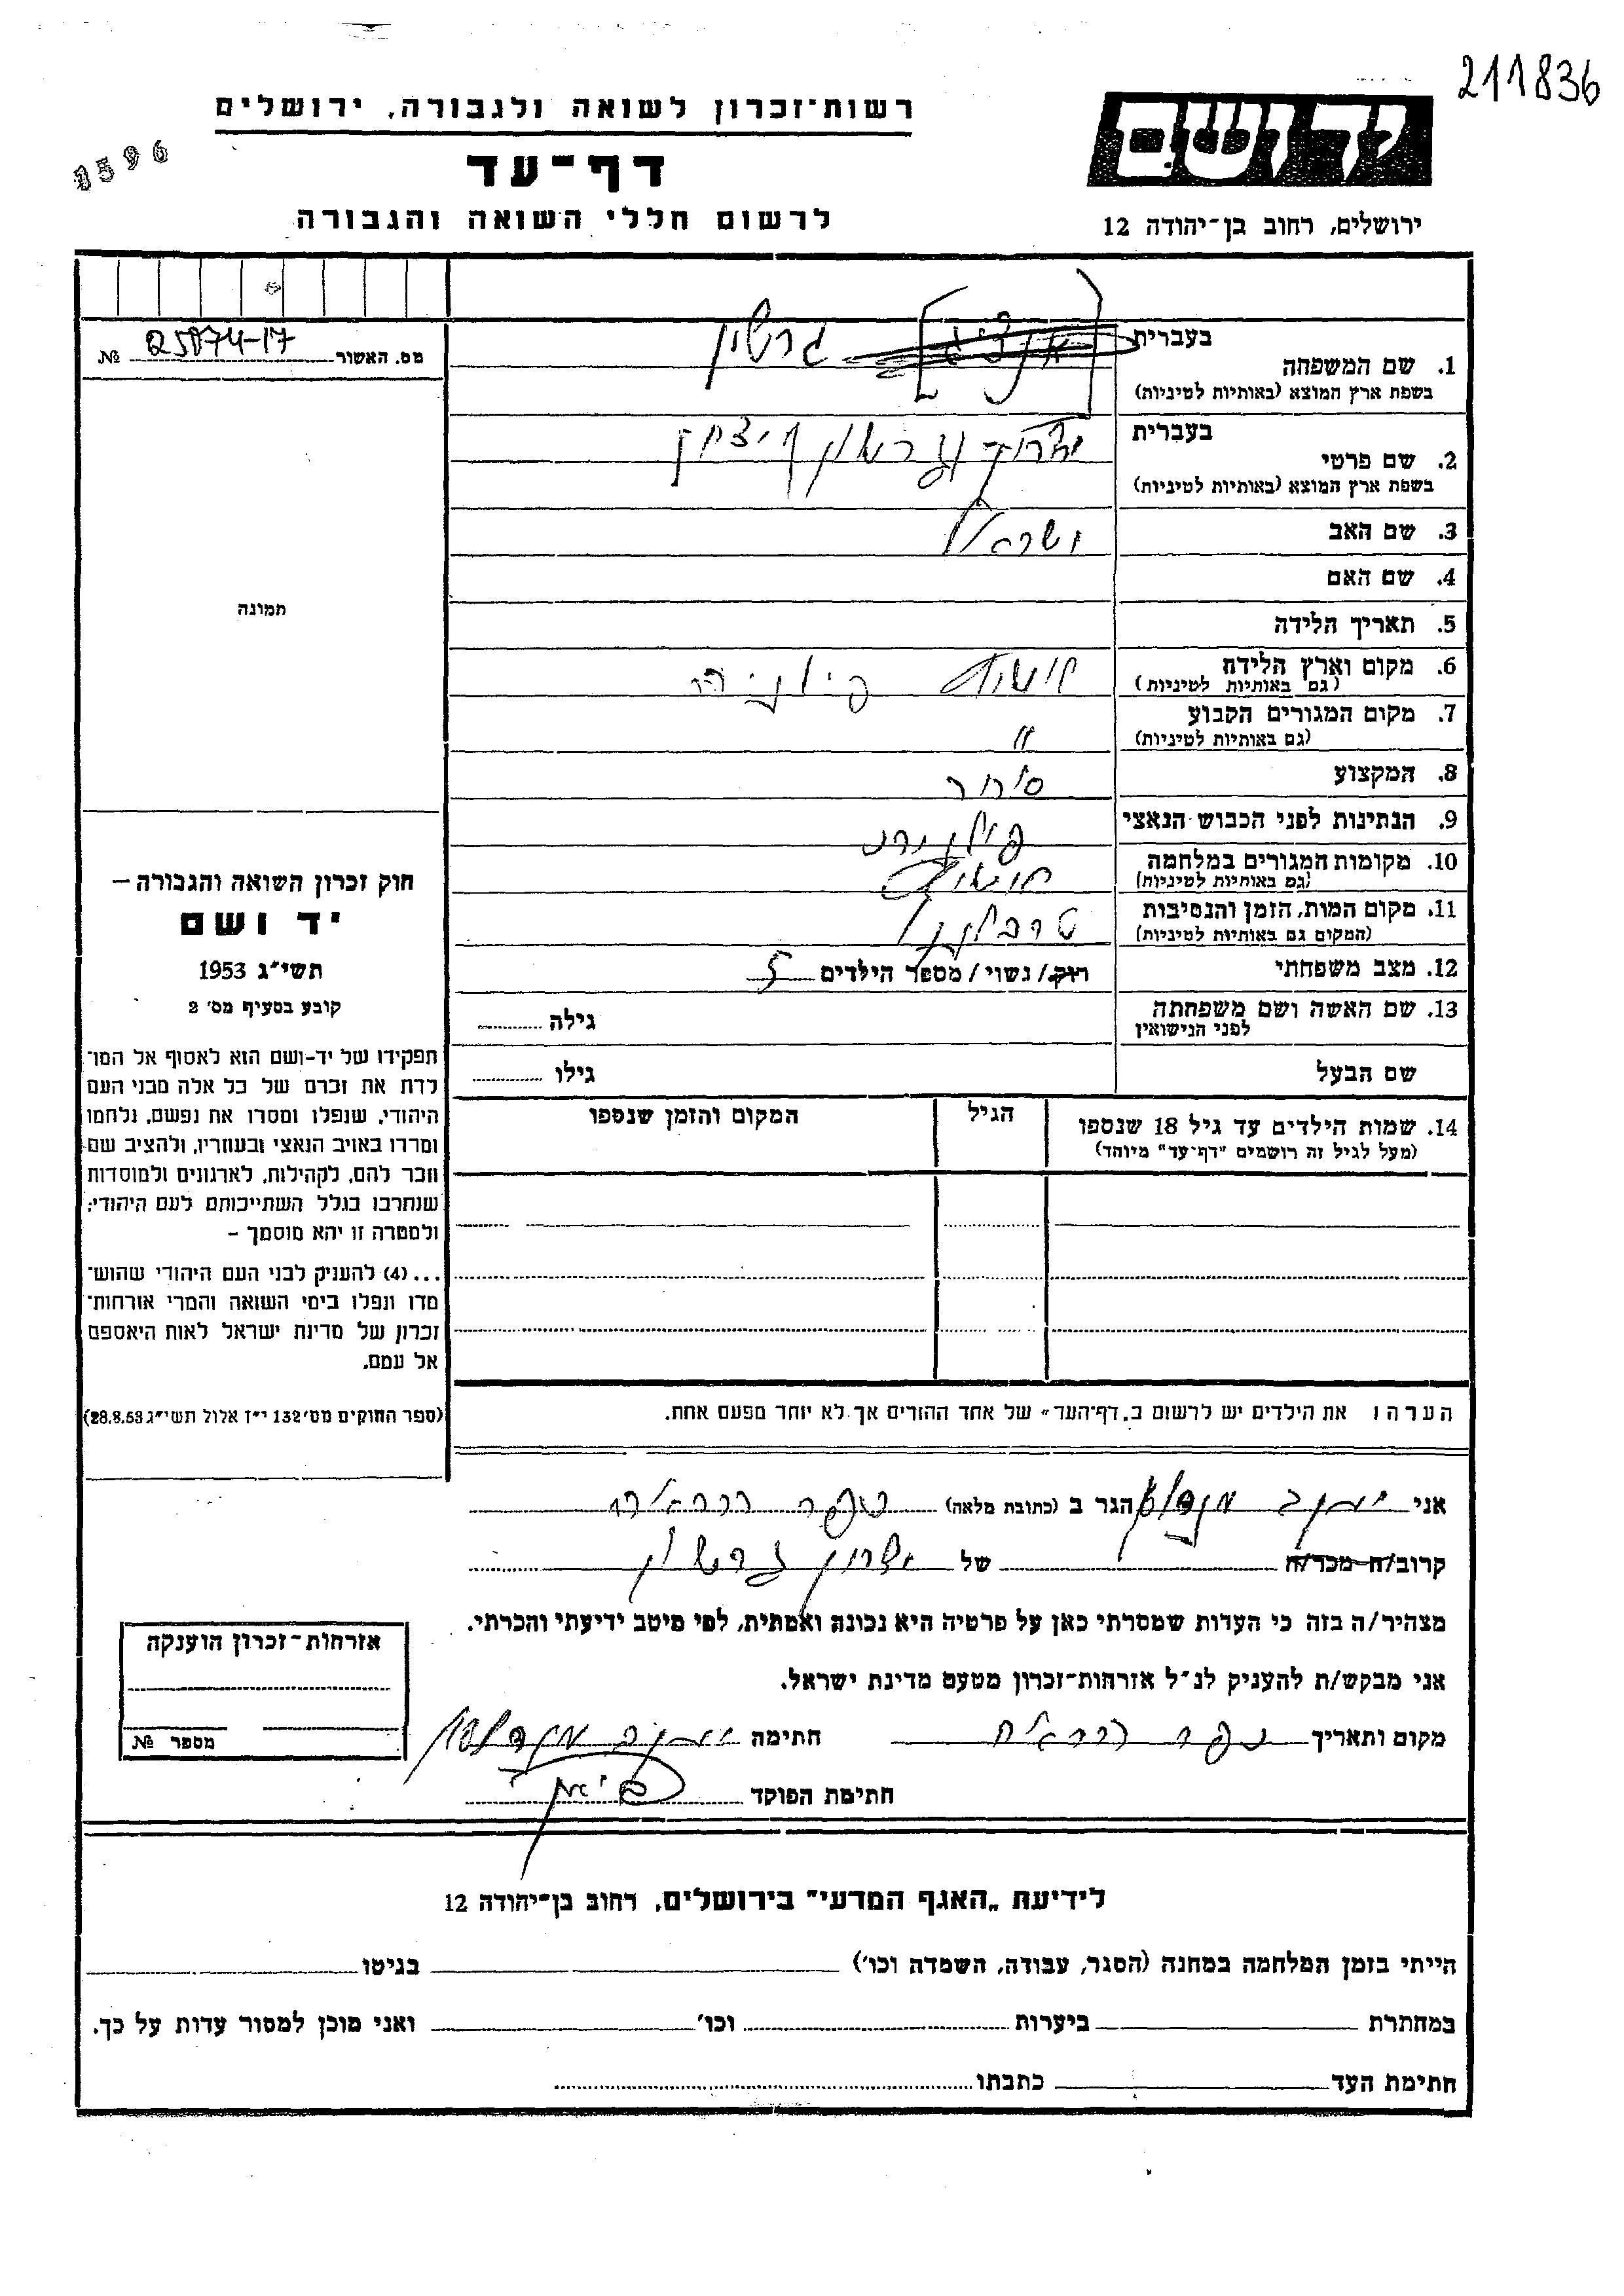 211836
רשות־זכרון לשואה ולגבורה, ירושלים
1596
יד ושם
דף־עד
לרשום חללי השואה והגבורה
ירושלים, רחוב בן־יהודה 12
בעברית
1. שם המשפחה גרשון
בשפת ארץ המוצא (באותיות לטיניות)
מס. האשור 25074-17 №
בעברית
2. שם פרטי
בשפת ארץ המוצא (באותיות לטיניות)
3. שם האב ישראל
4. שם האם
תמונה
5. תאריך הלידה
6. מקום וארץ הלידה פולניה
(גם באותיות לטיניות)
7. מקום המגורים הקבוע "
(גם באותיות לטיניות)
8. המקצוע סוחר
9. הנתינות לפני הכבוש הנאצי
10. מקומות המגורים במלחמה
(גם באותיות לטיניות)
11. מקום המות, הזמן והנסיבות
(המקום גם באותיות לטיניות)
12. מצב משפחתי רווק/נשוי/מספר הילדים 5
13. שם האשה ושם משפחתה
לפני הנישואין
גילה
שם הבעל גילו
חוק זכרון השואה והגבורה –
יד ושם
תשי"ג 1953
קובע בסעיף מס' 2
תפקידו של יד-ושם הוא לאסוף אל המו־
לדת את זכרם של כל אלה מבני העם
היהודי, שנפלו ומסרו את נפשם, נלחמו
ומרדו באויב הנאצי ובעוזריו, ולהציב שם
וזכר להם, לקהילות, לארגונים ולמוסדות
שנחרבו בגלל השתייכותם לעם היהודי;
ולמטרה זו יהא מוסמך –
...(4) להעניק לבני העם היהודי שהוש־
מדו ונפלו בימי השואה והמרי אזרחות־
זכרון של מדינת ישראל לאות היאספם
אל עמם.
(ספר החוקים מס' 132 י"ז אלול תשי"ג 28.8.53)
14. שמות הילדים עד גיל 18 שנספו הגיל המקום והזמן שנספו
(מעל לגיל זה רושמים "דף־עד" מיוחד)
הערה: את הילדים יש לרשום ב„דף־העד" של אחד ההורים אך לא יותר מפעם אחת.
אני יעקב הגר ב (כתובת מלאה) כפר
קרוב/ה מכר/ה של גרשון
מצהיר/ה בזה כי העדות שמסרתי כאן על פרטיה היא נכונה ואמתית, לפי מיטב ידיעתי והכרתי.
אני מבקש/ת להעניק לנ"ל אזרחות־זכרון מטעם מדינת ישראל.
מקום ותאריך כפר חתימה יעקב
חתימת הפוקד
אזרחות־זכרון הוענקה
מספר №
לידיעת „האגף המדעי" בירושלים, רחוב בן־יהודה 12
הייתי בזמן המלחמה במחנה (הסגר, עבודה, השמדה וכו') בגיטו
במחתרת ביערות וכו' ואני מוכן למסור עדות על כך.
חתימת העד כתבתו